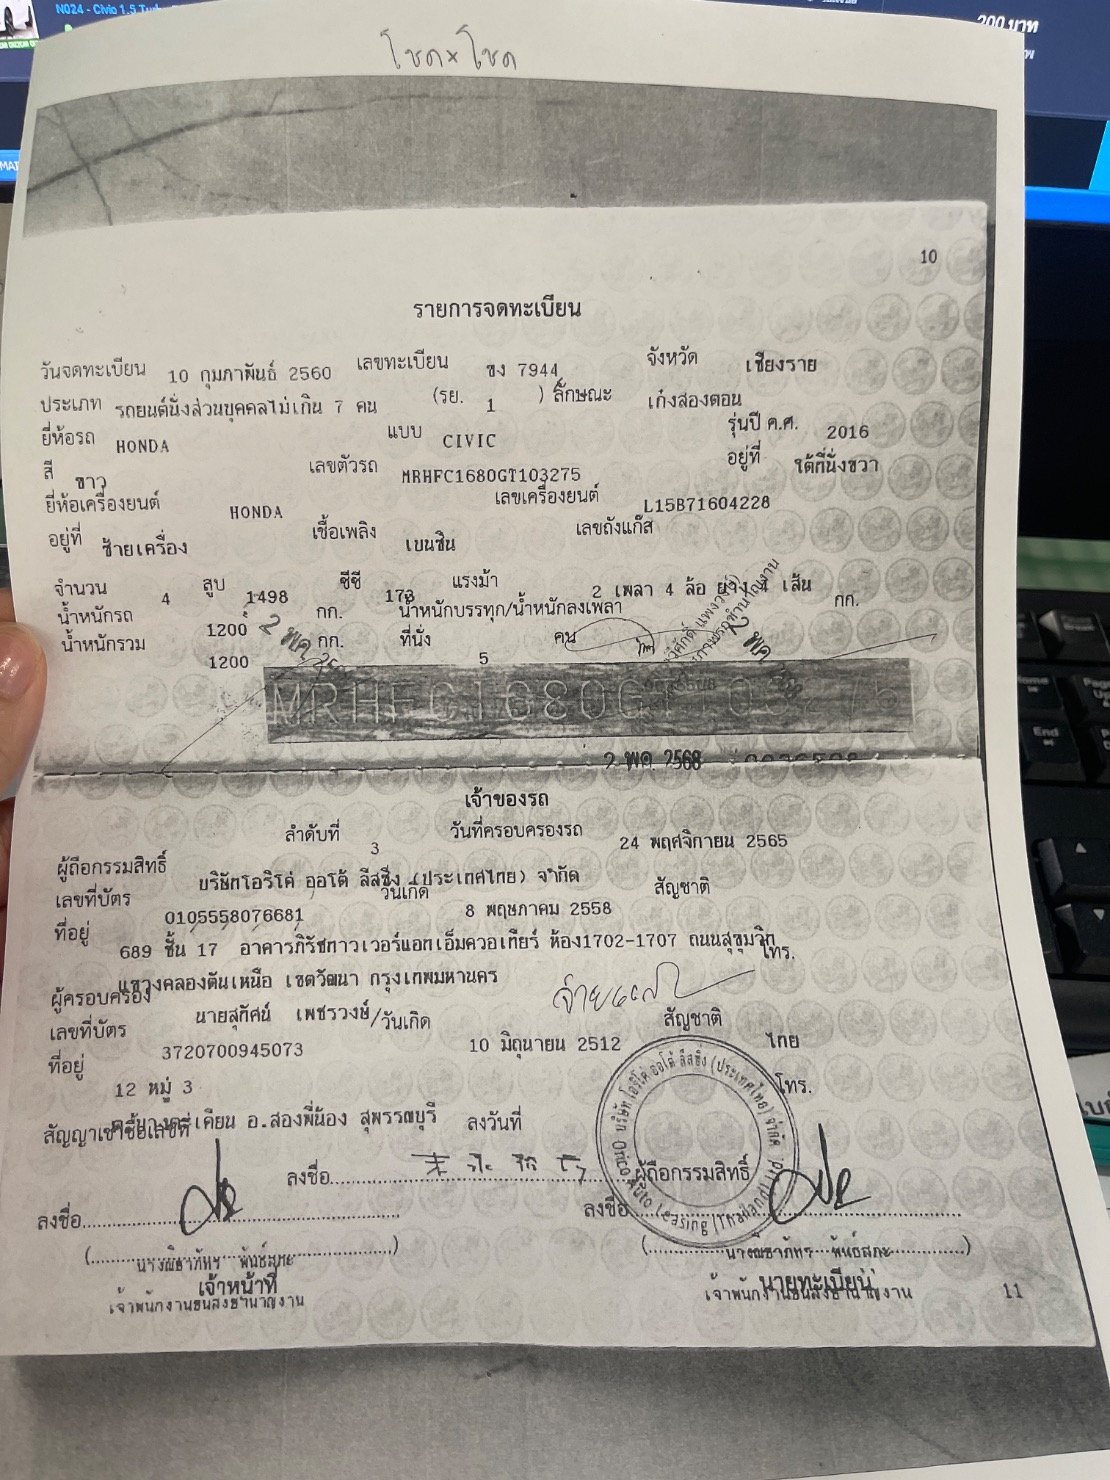 N024 - Civic 1.5
200 บาท
โชค×โชค
10
รายการจดทะเบียน
วันจดทะเบียน 10 กุมภาพันธ์ 2560 เลขทะเบียน ขง 7944 จังหวัด เชียงราย
ประเภท รถยนต์นั่งส่วนบุคคลไม่เกิน 7 คน (รย. 1 ) ลักษณะ เก๋งสองตอน
ยี่ห้อรถ HONDA แบบ CIVIC รุ่นปี ค.ศ. 2016
สี ขาว เลขตัวรถ MRHFC1680GT103275 อยู่ที่ ใต้ที่นั่งขวา
ยี่ห้อเครื่องยนต์ HONDA เลขเครื่องยนต์ L15B71604228
อยู่ที่ ซ้ายเครื่อง เชื้อเพลิง เบนซิน เลขถังแก๊ส
จำนวน 4 สูบ 1498 ซีซี 173 แรงม้า 2 เพลา 4 ล้อ ยาง 4 เส้น
น้ำหนักรถ 1200 กก. น้ำหนักบรรทุก/น้ำหนักลงเพลา กก.
น้ำหนักรวม 1200 กก. ที่นั่ง 5 คน
2 พค
2 พค
MRHFC1680GT103275
2 พค 2568
เจ้าของรถ
ลำดับที่ 3 วันที่ครอบครองรถ 24 พฤศจิกายน 2565
ผู้ถือกรรมสิทธิ์ บริษัทโอริโค่ ออโต้ ลีสซิ่ง (ประเทศไทย) จำกัด
เลขที่บัตร 0105558076681 วันเกิด 8 พฤษภาคม 2558 สัญชาติ
ที่อยู่ 689 ชั้น 17 อาคารภิรัชทาวเวอร์แอทเอ็มควอเทียร์ ห้อง1702-1707 ถนนสุขุมวิท โทร.
แขวงคลองตันเหนือ เขตวัฒนา กรุงเทพมหานคร
ผู้ครอบครอง นายสุทัศน์ เพชรวงษ์
เลขที่บัตร 3720700945073 วันเกิด 10 มิถุนายน 2512 สัญชาติ ไทย
ที่อยู่ 12 หมู่ 3 โทร.
อ.สองพี่น้อง สุพรรณบุรี
สัญญาเช่าซื้อเลขที่ ลงวันที่
ลงชื่อ ผู้ถือกรรมสิทธิ์
บริษัท โอริโค่ ออโต้ ลีสซิ่ง (ประเทศไทย) จำกัด
Orico Auto Leasing (Thailand) Ltd.
ลงชื่อ ลงชื่อ
เจ้าหน้าที่ นายทะเบียน
เจ้าพนักงานขนส่งชำนาญงาน เจ้าพนักงานขนส่งชำนาญงาน
11
Home
End